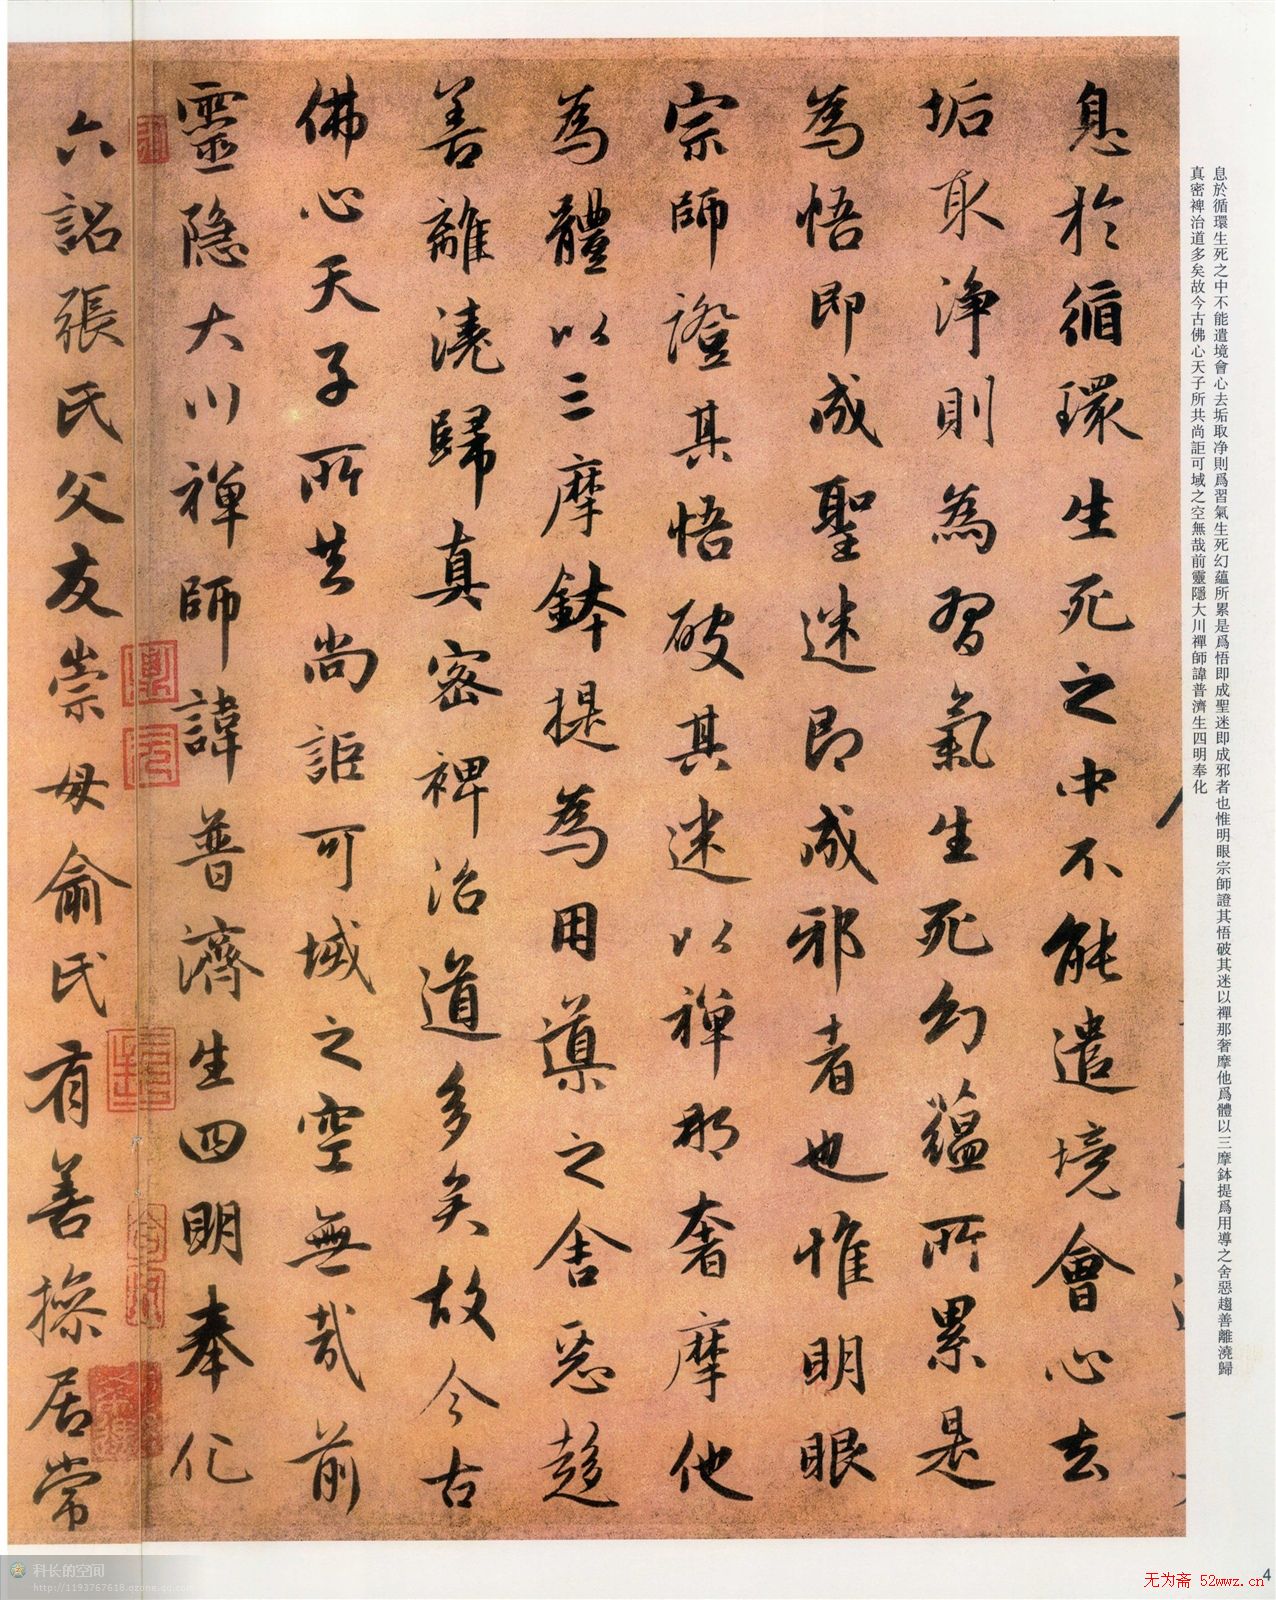 息於循環生死之中不能遣境會心去
垢取淨則為習氣生死幻蘊所累是
為悟即成聖迷即成邪者也惟明眼
宗師證其悟破其迷以禪那奢摩他
為體以三摩鉢提為用導之舍惡趨
善離澆歸真密裨治道多矣故今古
佛心天子所共尚詎可域之空無哉前
靈隱大川禪師諱普濟生四明奉化
六詔張氏父友崇母俞氏有善操居常
息於循環生死之中不能遣境會心去垢取净則爲習氣生死幻蘊所累是爲悟即成聖迷即成邪者也惟明眼宗師證其悟破其迷以禪那奢摩他爲體以三摩鉢提爲用導之舍惡趨善離澆歸
真密裨治道多矣故今古佛心天子所共尚詎可域之空無哉前靈隱大川禪師諱普濟生四明奉化
4
科长的空间
http://1193767618.qzone.qq.com
无为斋 52wwz.cn